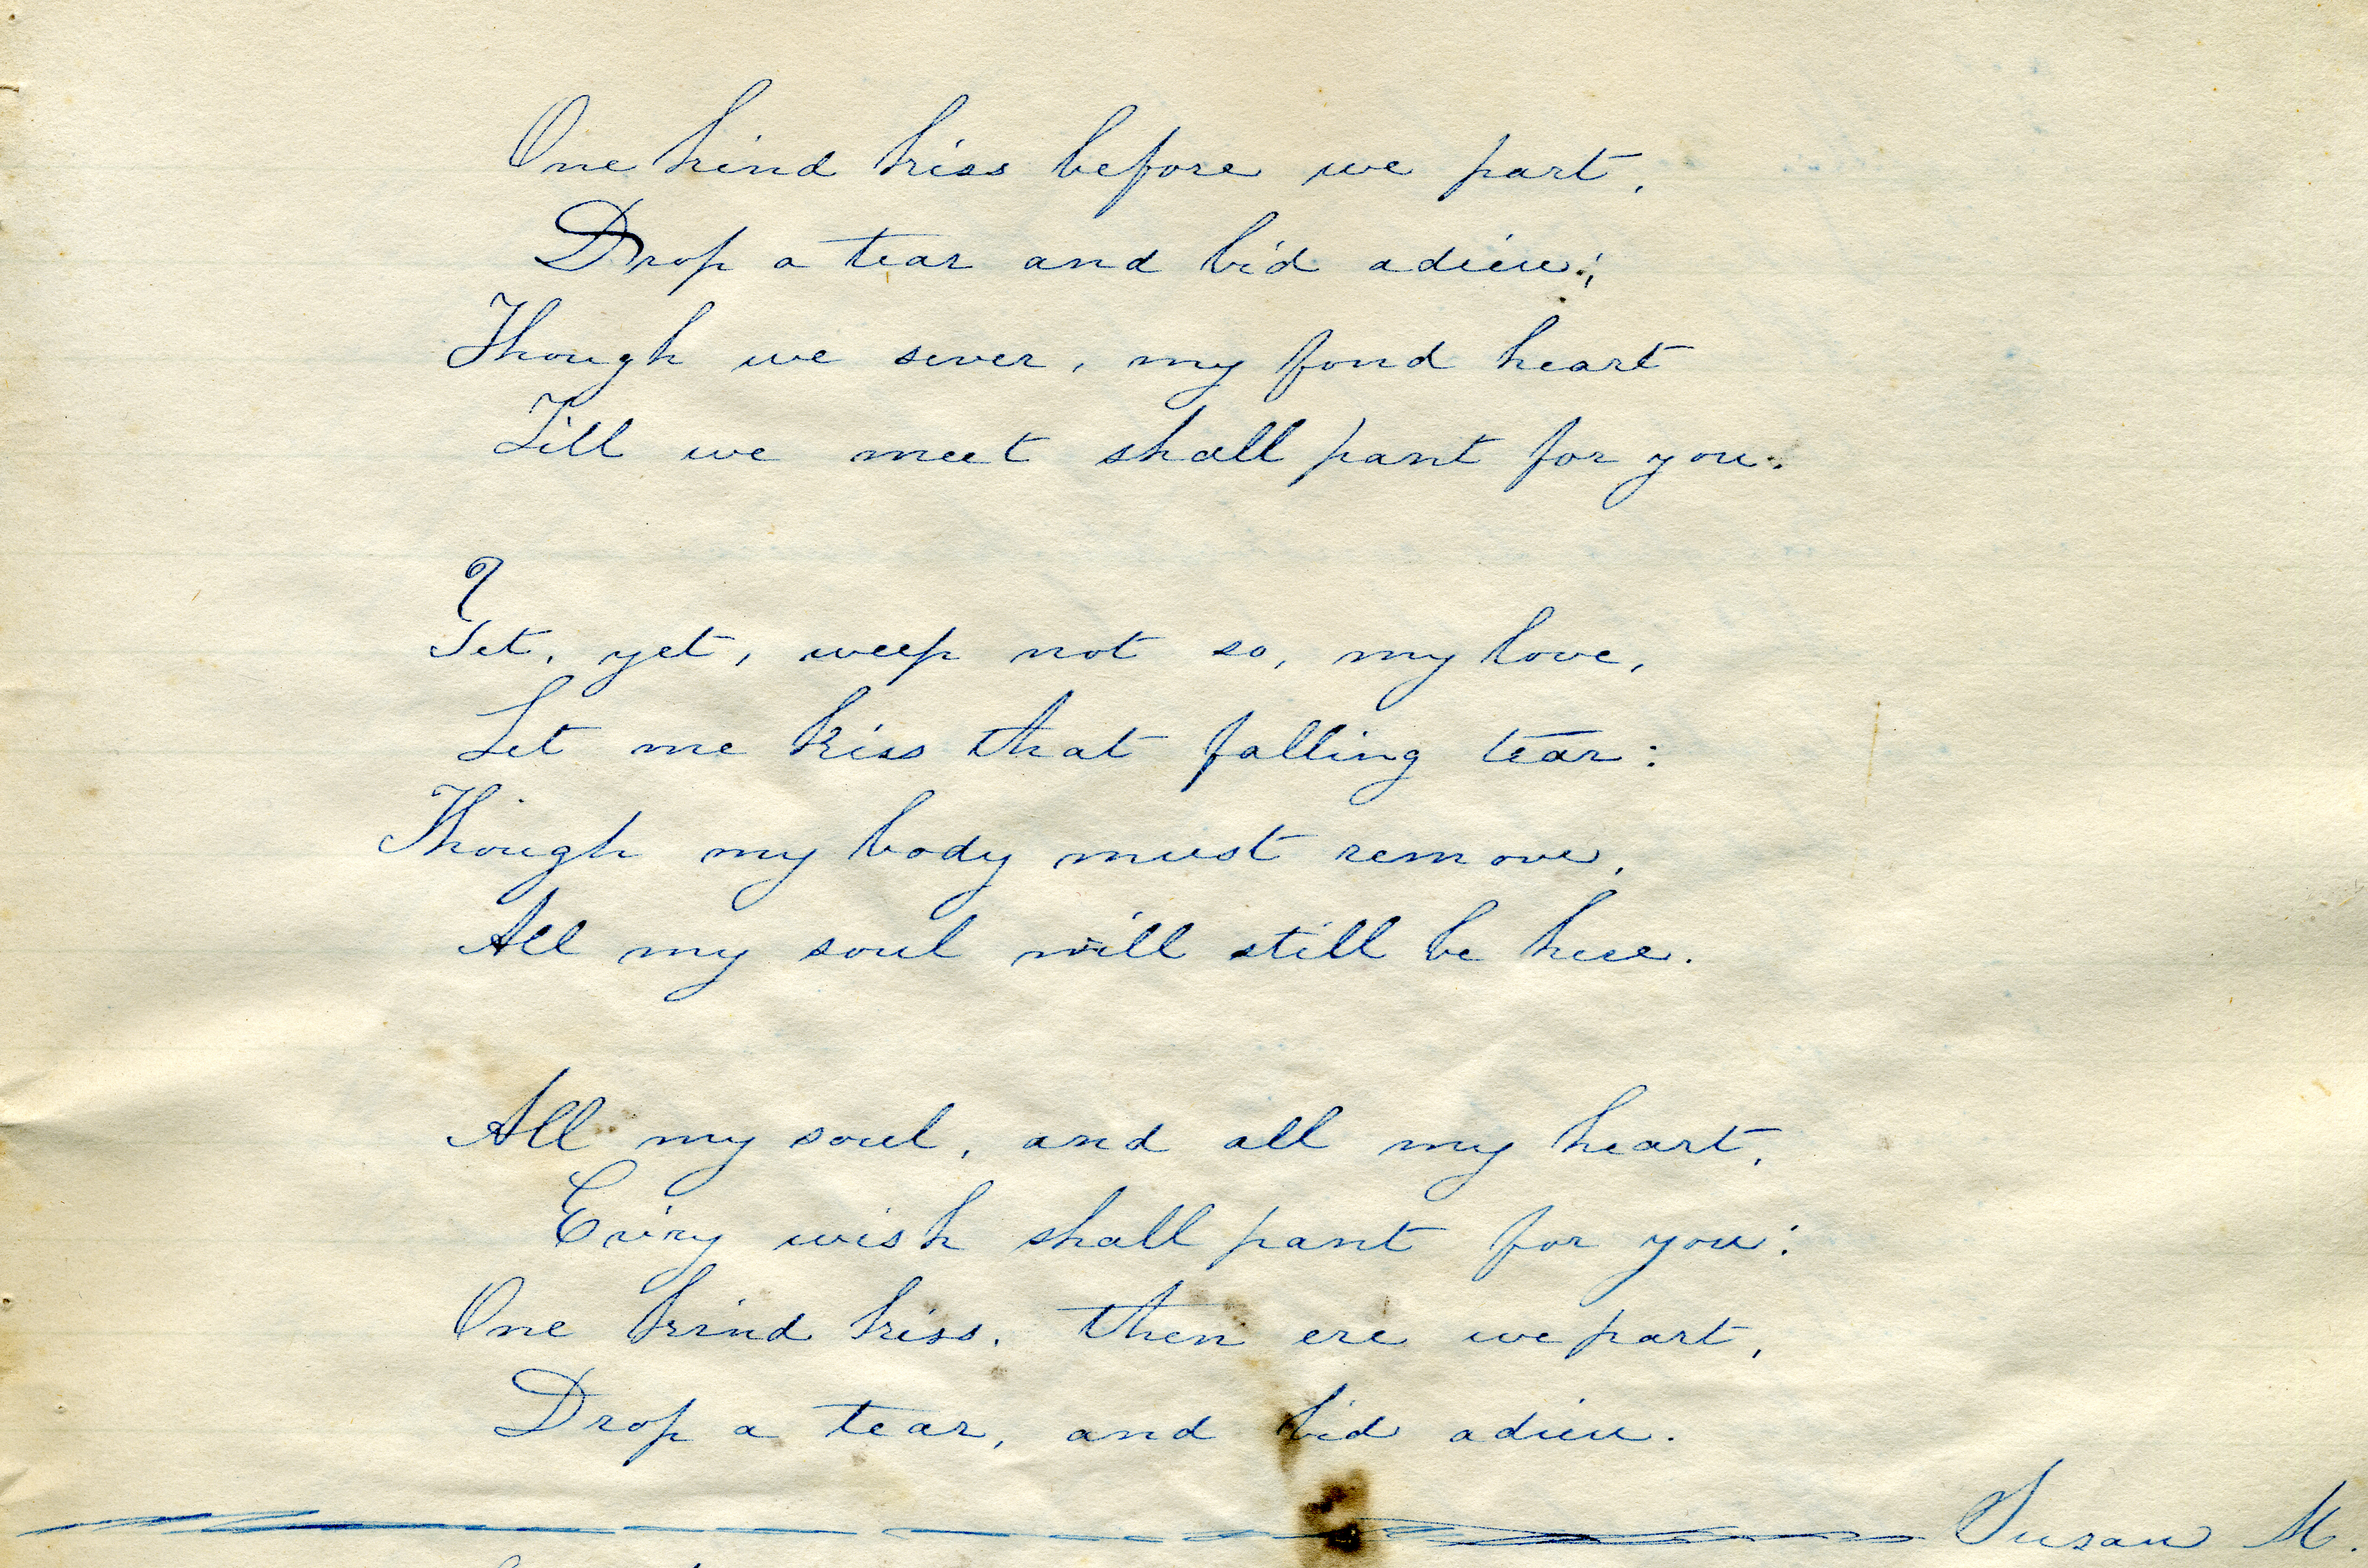 One kind kiss before we part,
Drop a tear and bid adieu;
Though we sever, my fond heart
Till we meet shall pant for you.
Yet, yet, weep not so, my love,
Let me kiss that falling tear:
Though my body must remove,
All my soul will still be here.
All my soul, and all my heart,
Ev'ry wish shall pant for you:
One kind kiss, then ere we part,
Drop a tear, and bid adieu.
Susan M.